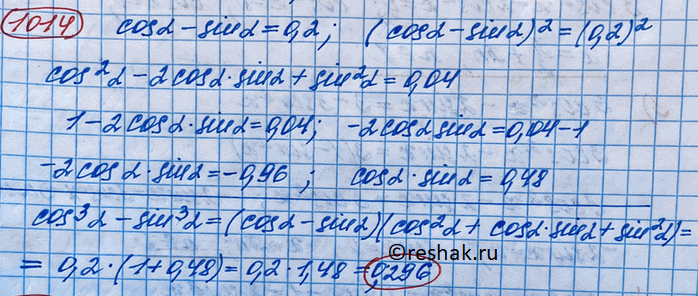 1014 cosα - sinα = 0,2; (cosα - sinα)² = (0,2)²
cos²α - 2cosα·sinα + sin²α = 0,04
1 - 2cosα·sinα = 0,04; -2cosα sinα = 0,04 - 1
-2cosα·sinα = -0,96; cosα·sinα = 0,48
cos³α - sin³α = (cosα - sinα)(cos²α + cosα·sinα + sin²α) =
= 0,2·(1 + 0,48) = 0,2·1,48 = 0,296
©reshak.ru